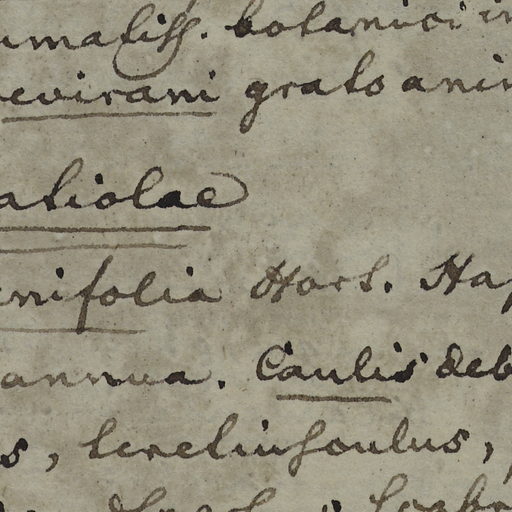 umatiss. botanici in
evirani grato anim
atiolae
nifolia Hort. Ha
annua. Caulis deb
s, teretiusculus,